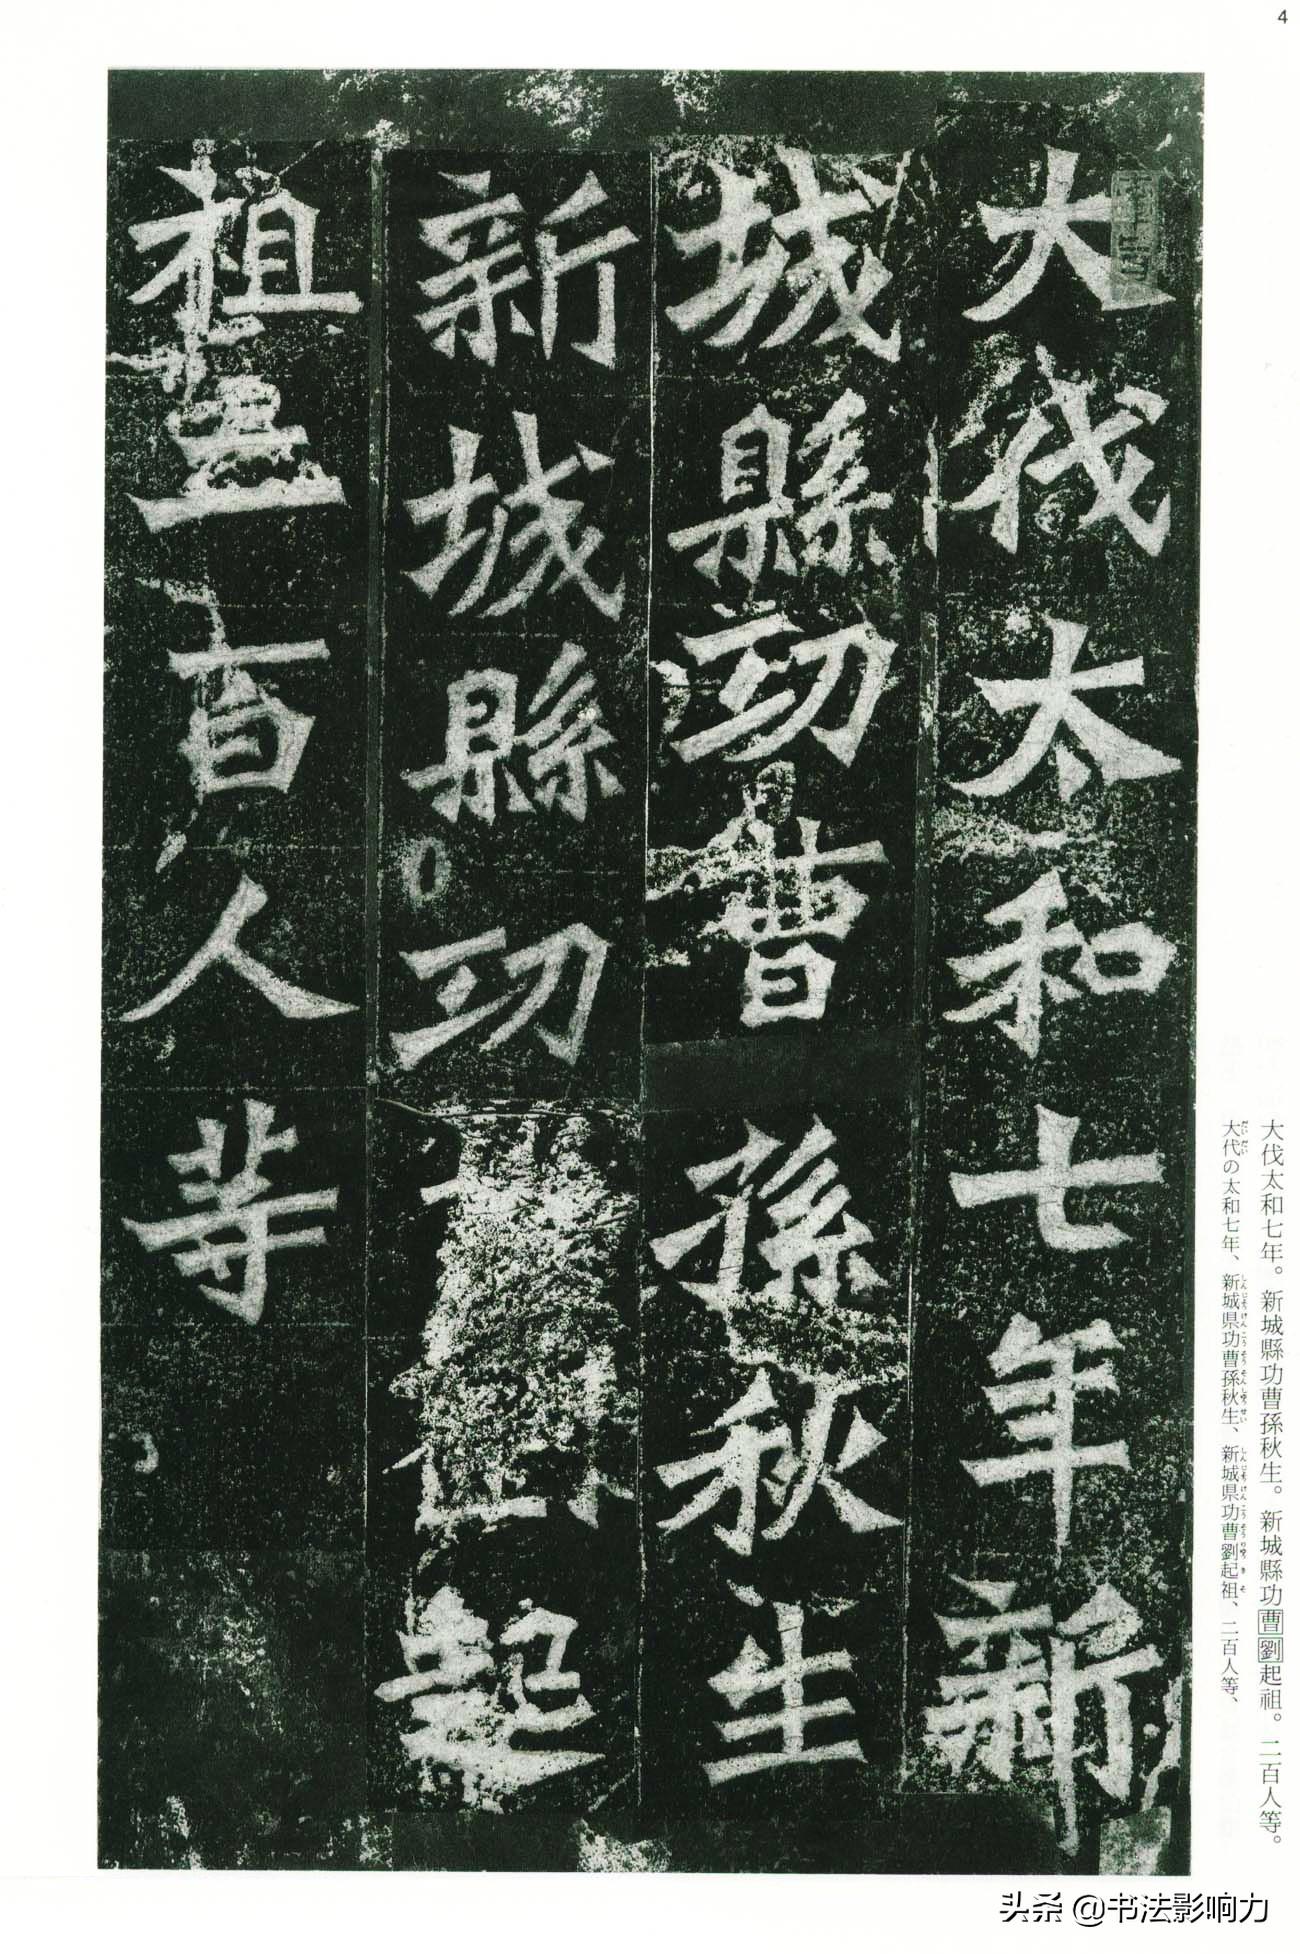 4
大伐太和七年新
城縣功曹孫秋生
新城縣功
起
祖二百人等
大伐太和七年。新城縣功曹孫秋生。新城縣功曹劉起祖。二百人等。
大代の太和七年、新城県功曹孫秋生、新城県功曹劉起祖、二百人等、
头条 @书法影响力